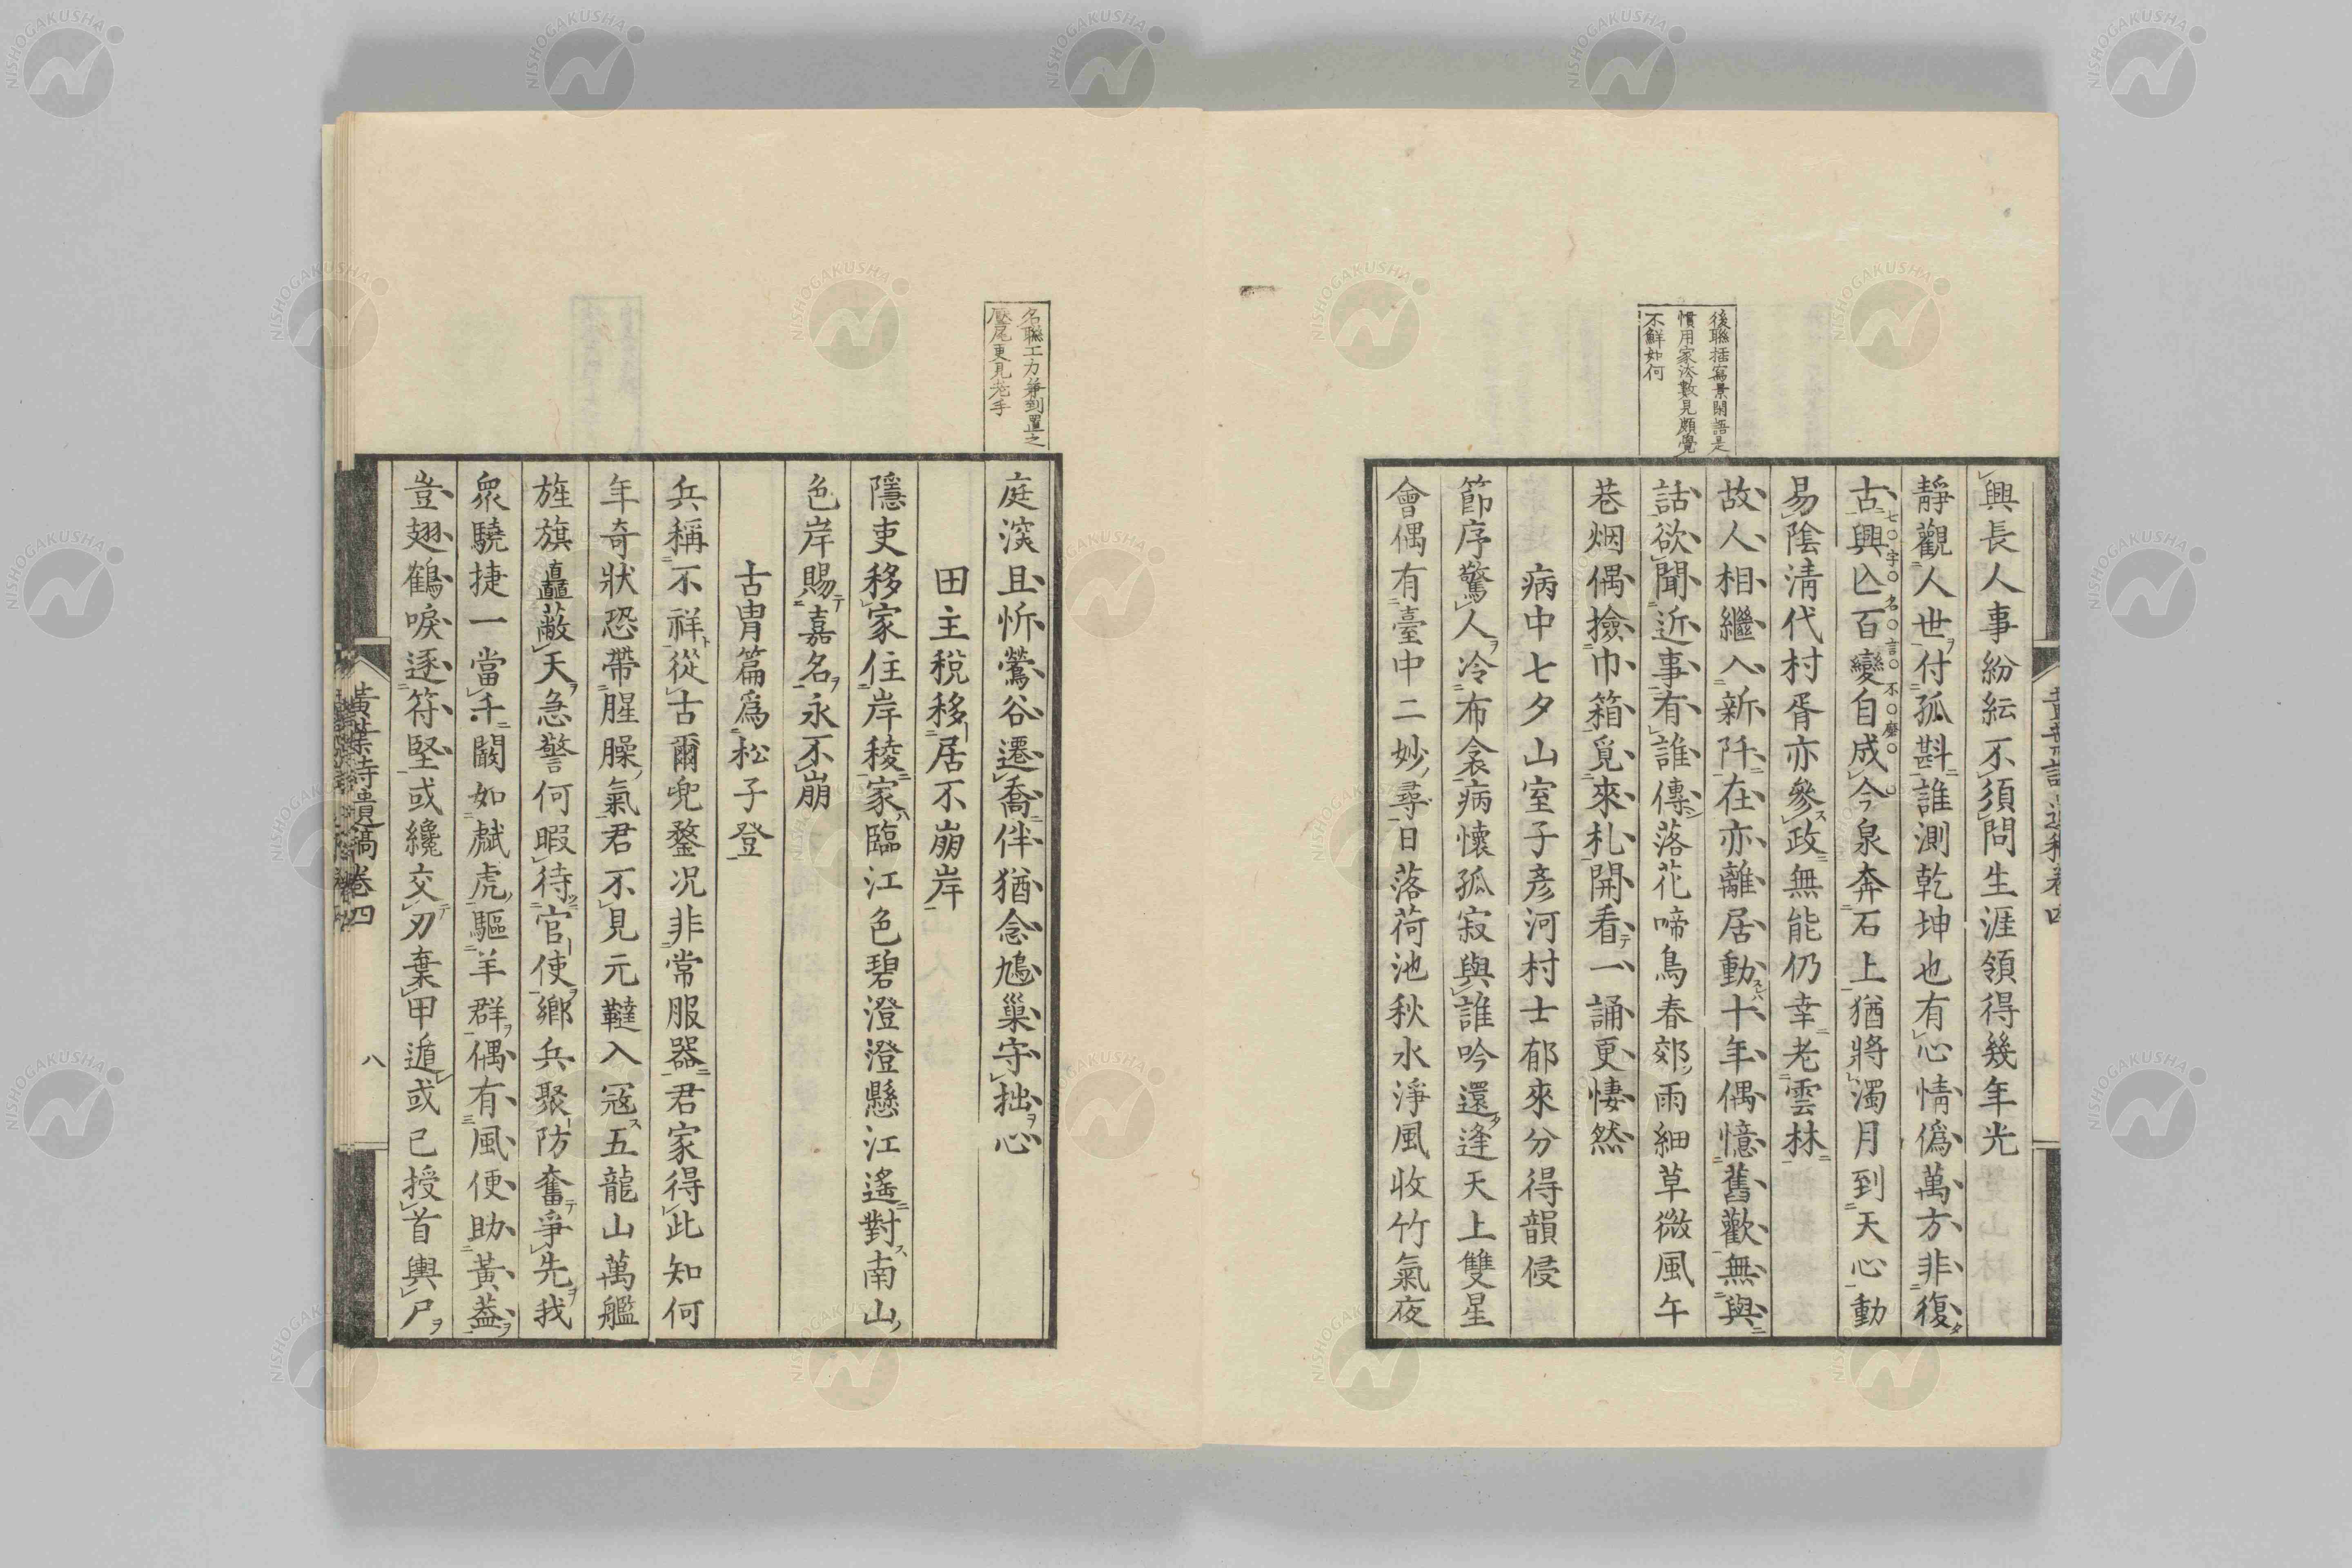 後聯插寫景閑語是
慣用家法數見頗覺
不鮮如何
興長人事紛紜不須問生涯領得幾年光
靜觀人世付孤斟誰測乾坤也有心情僞萬方非復
古興亾百變自成今泉奔石上猶將濁月到天心動
七字名言不磨
易陰淸代村胥亦參政無能仍幸老雲林
故人相繼入新阡在亦離居動十年偶憶舊歡無與
話欲聞近事有誰傳落花啼鳥春郊雨細草微風午
巷烟偶撿巾箱覓來札開看一誦更悽然
病中七夕山室子彥河村士郁來分得韻侵
節序驚人冷布衾病懷孤寂與誰吟還逢天上雙星
會偶有臺中二妙尋日落荷池秋水淨風收竹氣夜
名聯工力兼到置之
壓尾更見老手
庭深且忻鶯谷遷喬伴猶念鳩巢守拙心
田主稅移居不崩岸
隱吏移家住岸稜家臨江色碧澄澄懸江遙對南山
色岸賜嘉名永不崩
古冑篇爲松子登
兵稱不祥從古爾兜鍪況非常服器君家得此知何
年奇狀恐帶腥臊氣君不見元韃入寇五龍山萬艦
旌旗矗蔽天急警何暇待官使鄉兵聚防奮爭先我
衆驍捷一當千闞如虣虎驅羊群偶有風便助黃蓋
豈翅鶴唳逐符堅或纔交刃棄甲遁或已授首輿尸
黃葉夕陽村舍詩遺稿卷四
八
NISHOGAKUSHA